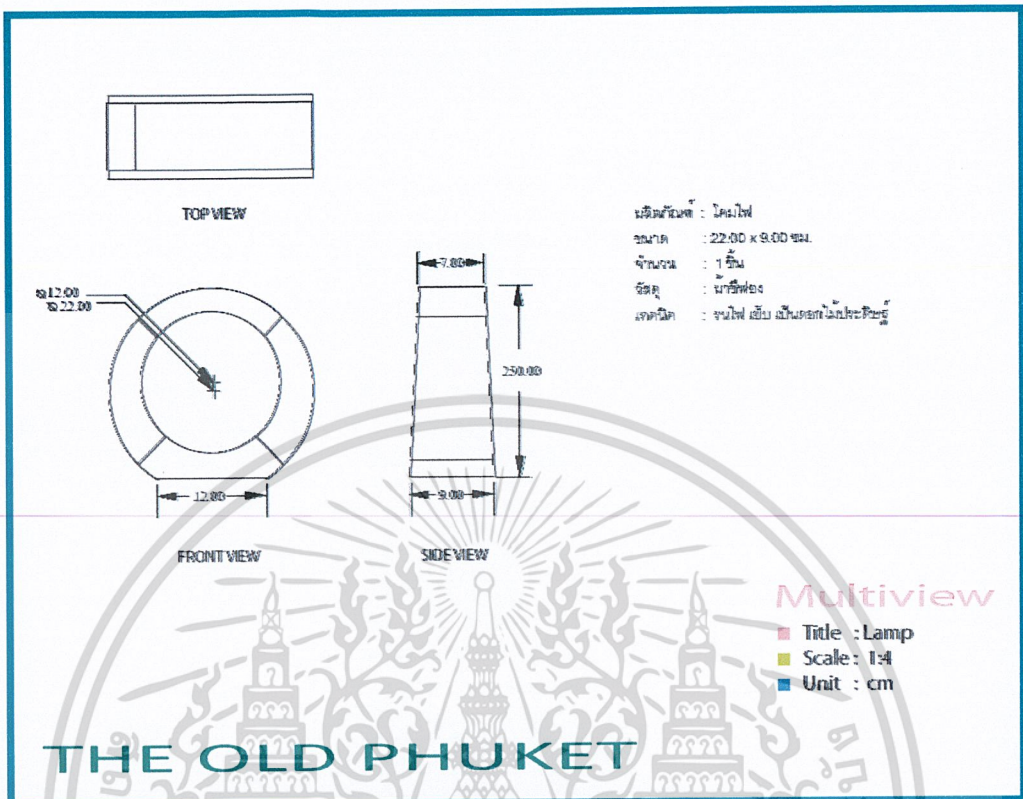 TOP VIEW
ผลิตภัณฑ์ : โคมไฟ
ขนาด : 22.00 x 9.00 ซม.
จำนวน : 1 ชิ้น
วัสดุ : ผ้าชีฟอง
เทคนิค : ลนไฟ เย็บ เป็นดอกไม้ประดิษฐ์
7.00
12.00
22.00
250.00
12.00
9.00
FRONT VIEW
SIDE VIEW
Multiview
Title : Lamp
Scale : 1:4
Unit : cm
THE OLD PHUKET